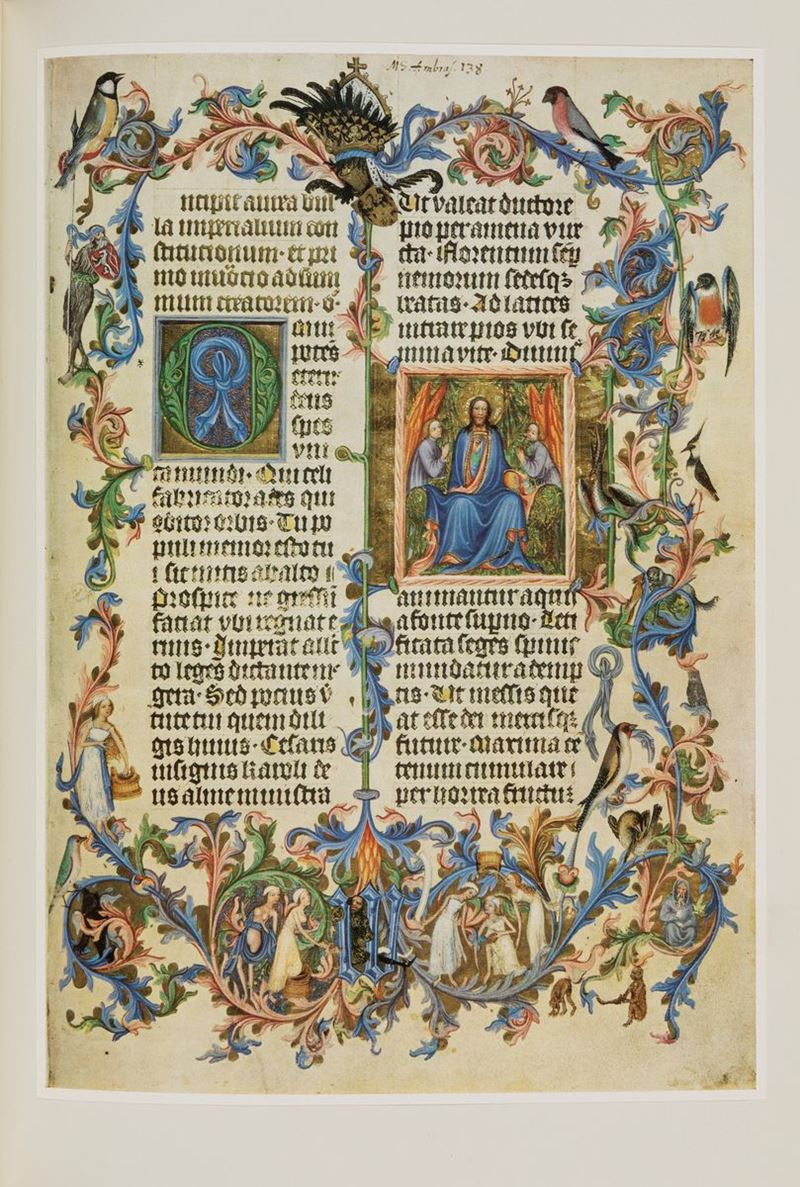 Ms Ambras. 138
ncipit aurea bul
la imperialium con
stitucionum· et pri
mo inuocio ad sum
mum creatorem· O·
mni
potēs
eterne
deus
spes
vni
ca mundi· Qui celi
fabricator ades qui
ꝯditor orbis· Tu po
puli memor esto tu
i sic mitis ab alto
Prospice ne gressū
faciat vbi regnat e
rinis· Imperat allec
to leges dictante me
gera· Sed pocius v̄
tute tui quem dili
gis huius· Cesaris
insignis karoli de
us alme ministra
Ut valeat ductore
pio per amena vire
cta· Florentum sēꝑ
nemorum sedesqꝫ
beatas· Ad latices
intrare pios vbi se
mina vite· Diuinis
animantur aquis
a fonte superno· Leti
ficata seges spinis
mundatur ademp
tis· Ut messis que
at esse dei mercisqꝫ
future· Maxima cē
tenum cumulare
per horrea fructus